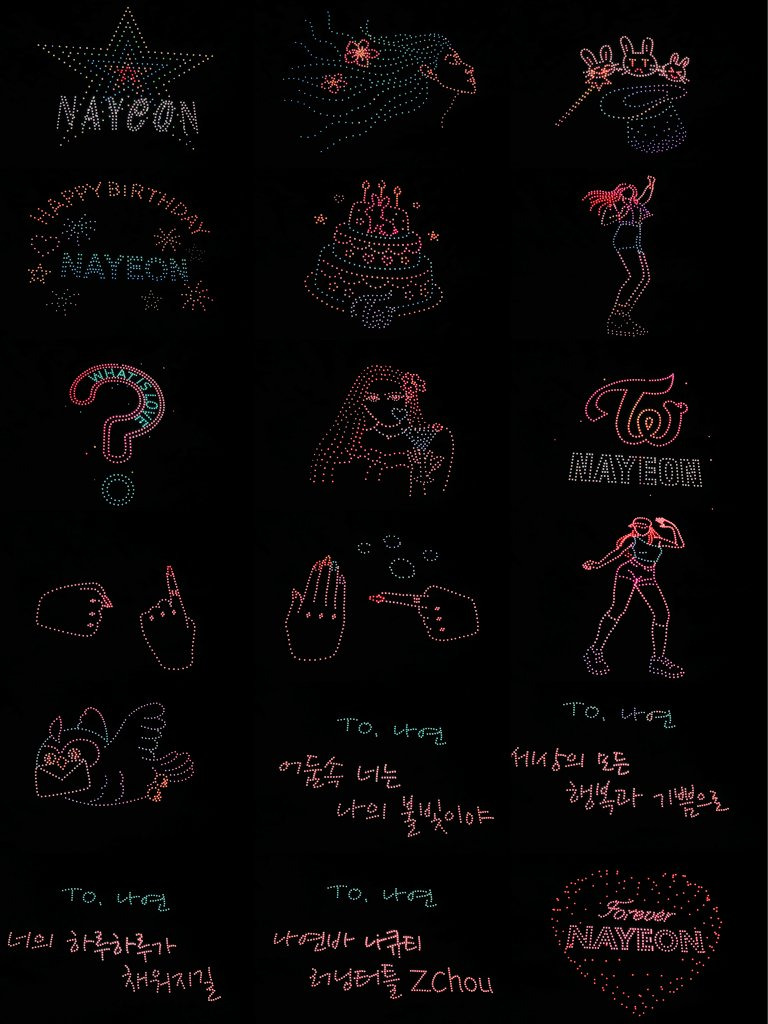 NAYEON
HAPPY BIRTHDAY
NAYEON
WHAT IS LOVE
TW
NAYEON
TO. 나연
어둠속 너는
나의 불빛이야
TO. 나연
세상의 모든
행복과 기쁨으로
TO. 나연
너의 하루하루가
채워지길
TO. 나연
나연바 나큐티
러닝터틀 ZChou
Forever
NAYEON